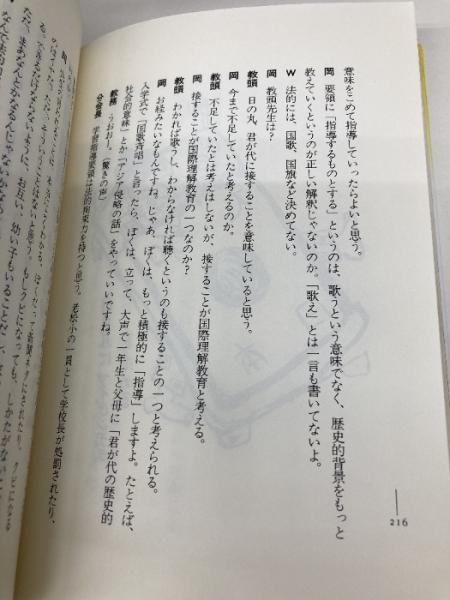 意味をこめて指導していったらよいと思う。
岡 要領に「指導するものとする」というのは、歌うという意味でなく、歴史的背景をもっと
教えていくというのが正しい解釈じゃないのか。「歌え」とは一言も書いてないよ。
W 法的には、国歌、国旗など決めてない。
岡 教頭先生は?
教頭 日の丸、君が代に接することを意味していると思う。
岡 今まで不足していたと考えるのか。
教頭 不足していたとは考えはしないが、接することが国際理解教育と考える。
岡 接することが国際理解教育の一つなのか?
教頭 わかれば歌うし、わからなければ聴くというのも接することの一つと考えられる。
岡 お経みたいなもんですね。じゃあ、ぼくは、もっと積極的に「指導」しますよ。たとえば、
入学式で「国歌斉唱」と言ったら、ぼくは、立って、大声で一年生と父母に「君が代の歴史的
社会的意味」とか「アジア侵略の話」をやっていいですね。
教務 うおおー。(驚きの声)
分会長 学習指導要領は法的拘束力を持つと思う。老松小の一員として学校長が処罰されたり、
216